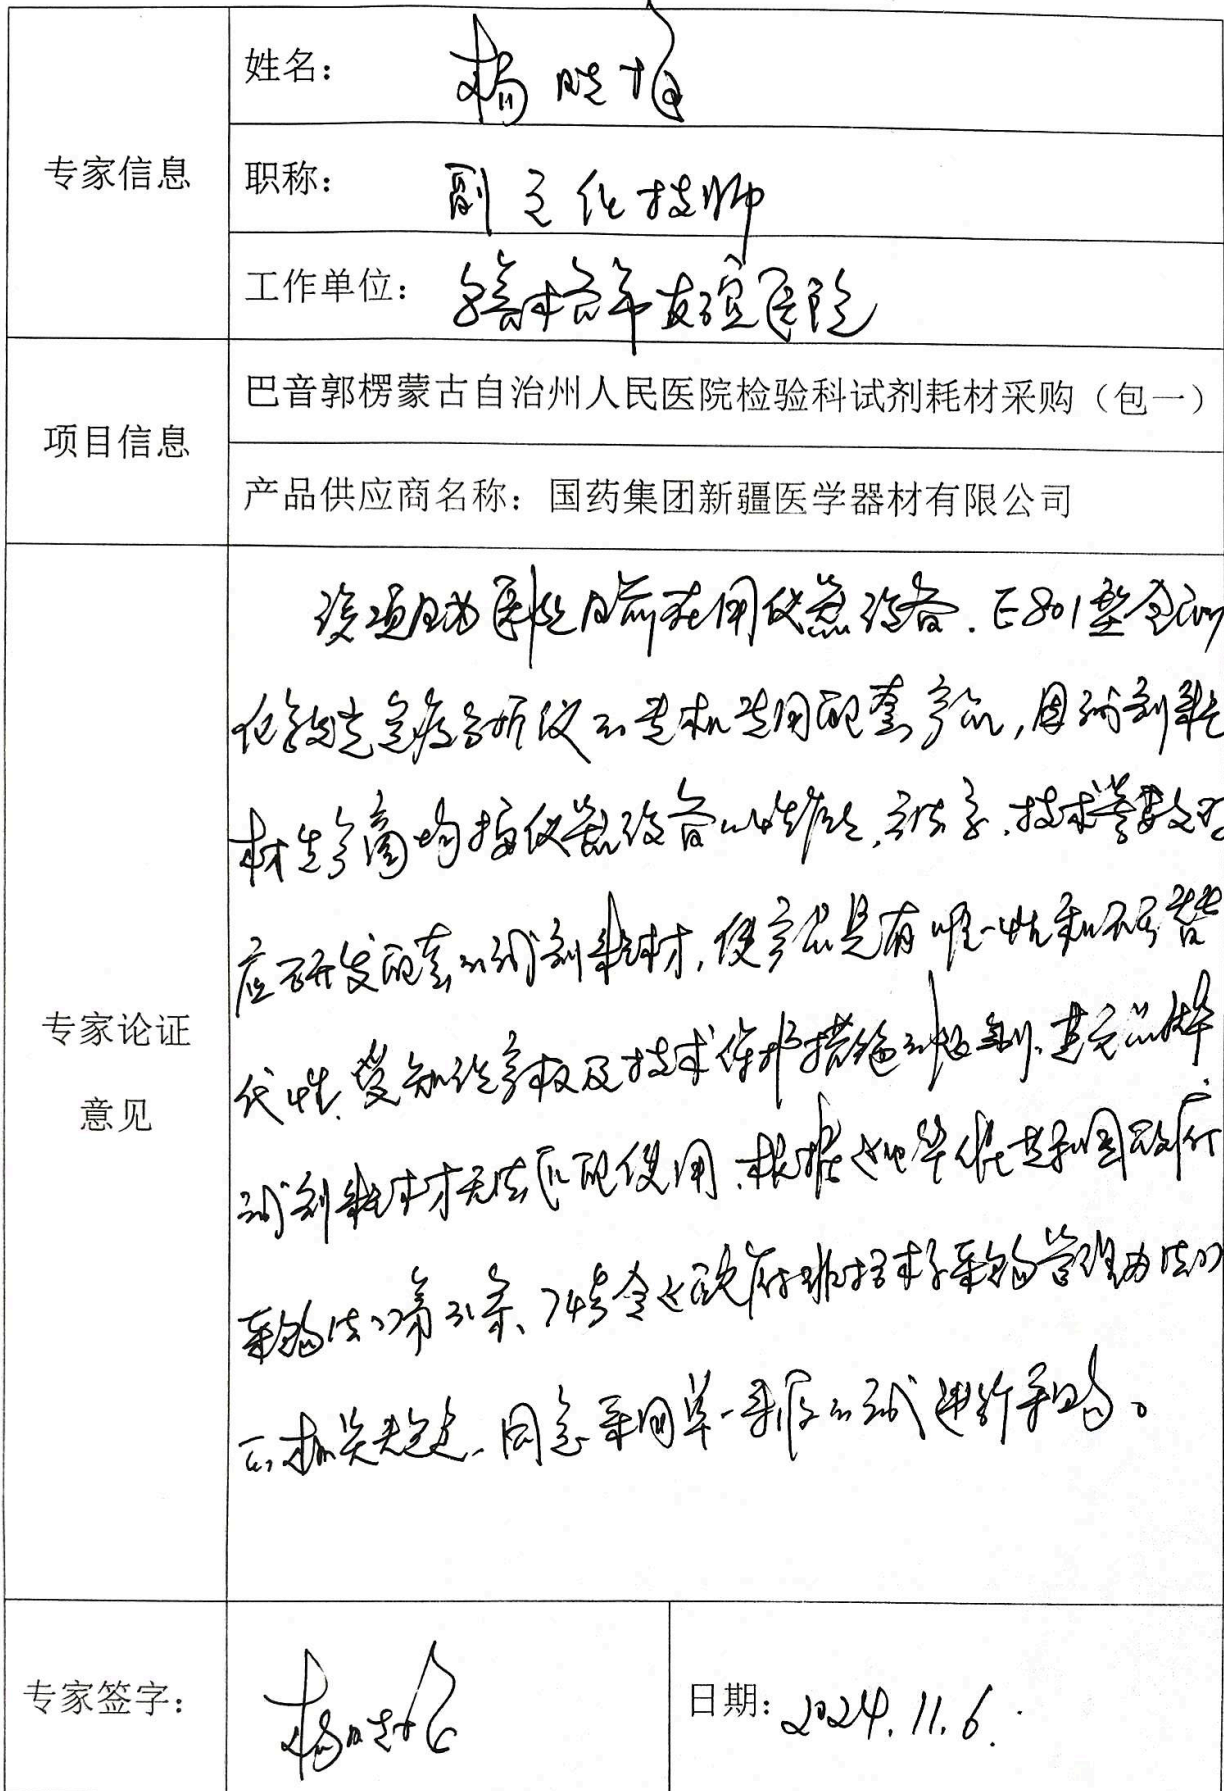 专家信息
姓名： 杨晓
职称： 副主任技师
工作单位： 乌鲁木齐市友谊医院
项目信息
巴音郭楞蒙古自治州人民医院检验科试剂耗材采购（包一）
产品供应商名称：国药集团新疆医学器材有限公司
专家论证
意见
该项目为医院目前在用仪器设备、E801型全自动
化学发光免疫分析仪的专机专用配套产品，因试剂耗
材生产商均按仪器设备的性能、方法学、技术参数对
应研发配套的试剂耗材，使产品具有唯一性和不可替
代性、受知识产权及技术保护措施的限制、其它品牌
试剂耗材无法匹配使用、根据《中华人民共和国政府
采购法》第31条、74号令《政府非招标采购管理办法》
的相关规定、同意采用单一来源的方式进行采购。
专家签字： 杨晓
日期：2024.11.6.